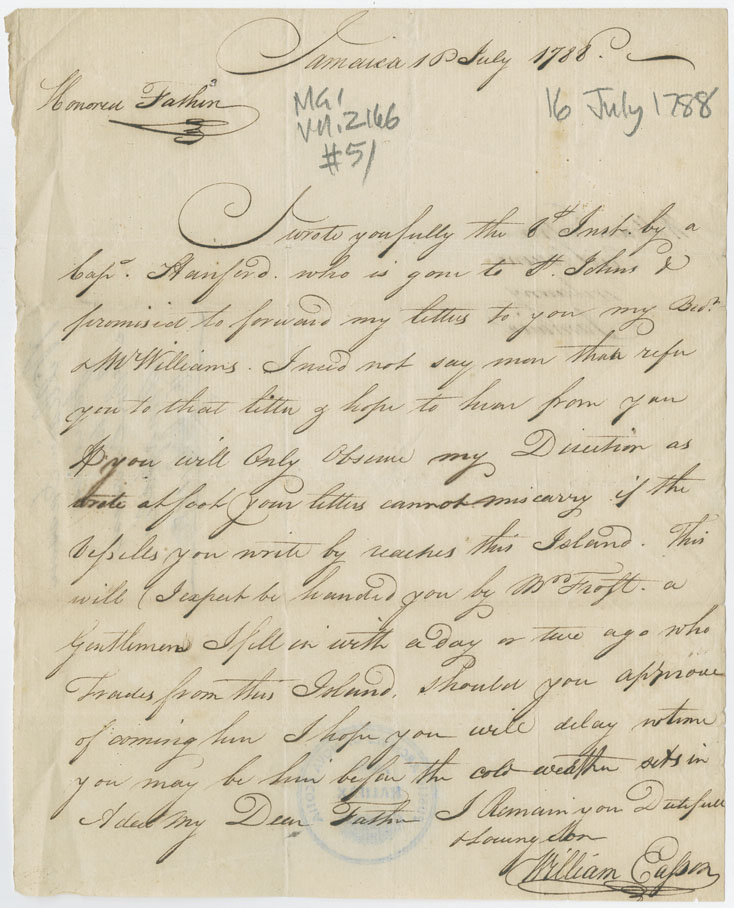 Jamaica 16 July 1788.
Honored Father
MG1
Vol. 2166
#51
16 July 1788
I wrote you fully the 8th Inst. by a
Capt. Hanford. who is gone to St. Johns &
promised to forward my letters to you my Brot.
& Mr Williams. I need not say more than refer
you to that letter & hope to hear from you
If you will Only Observe my Direction as
wrote at foot your letters cannot miscarry if the
Vessells you write by reaches this Island. This
will I expect be handed you by Mr Frost. a
Gentlemen I fell in with a day or two ago who
Trades from this Island, should you approve
of coming here I hope you will delay no time
you may be here before the cold weather sets in
Adeu My Dear Father I Remain your Dutifull
& loving Son
William Easson